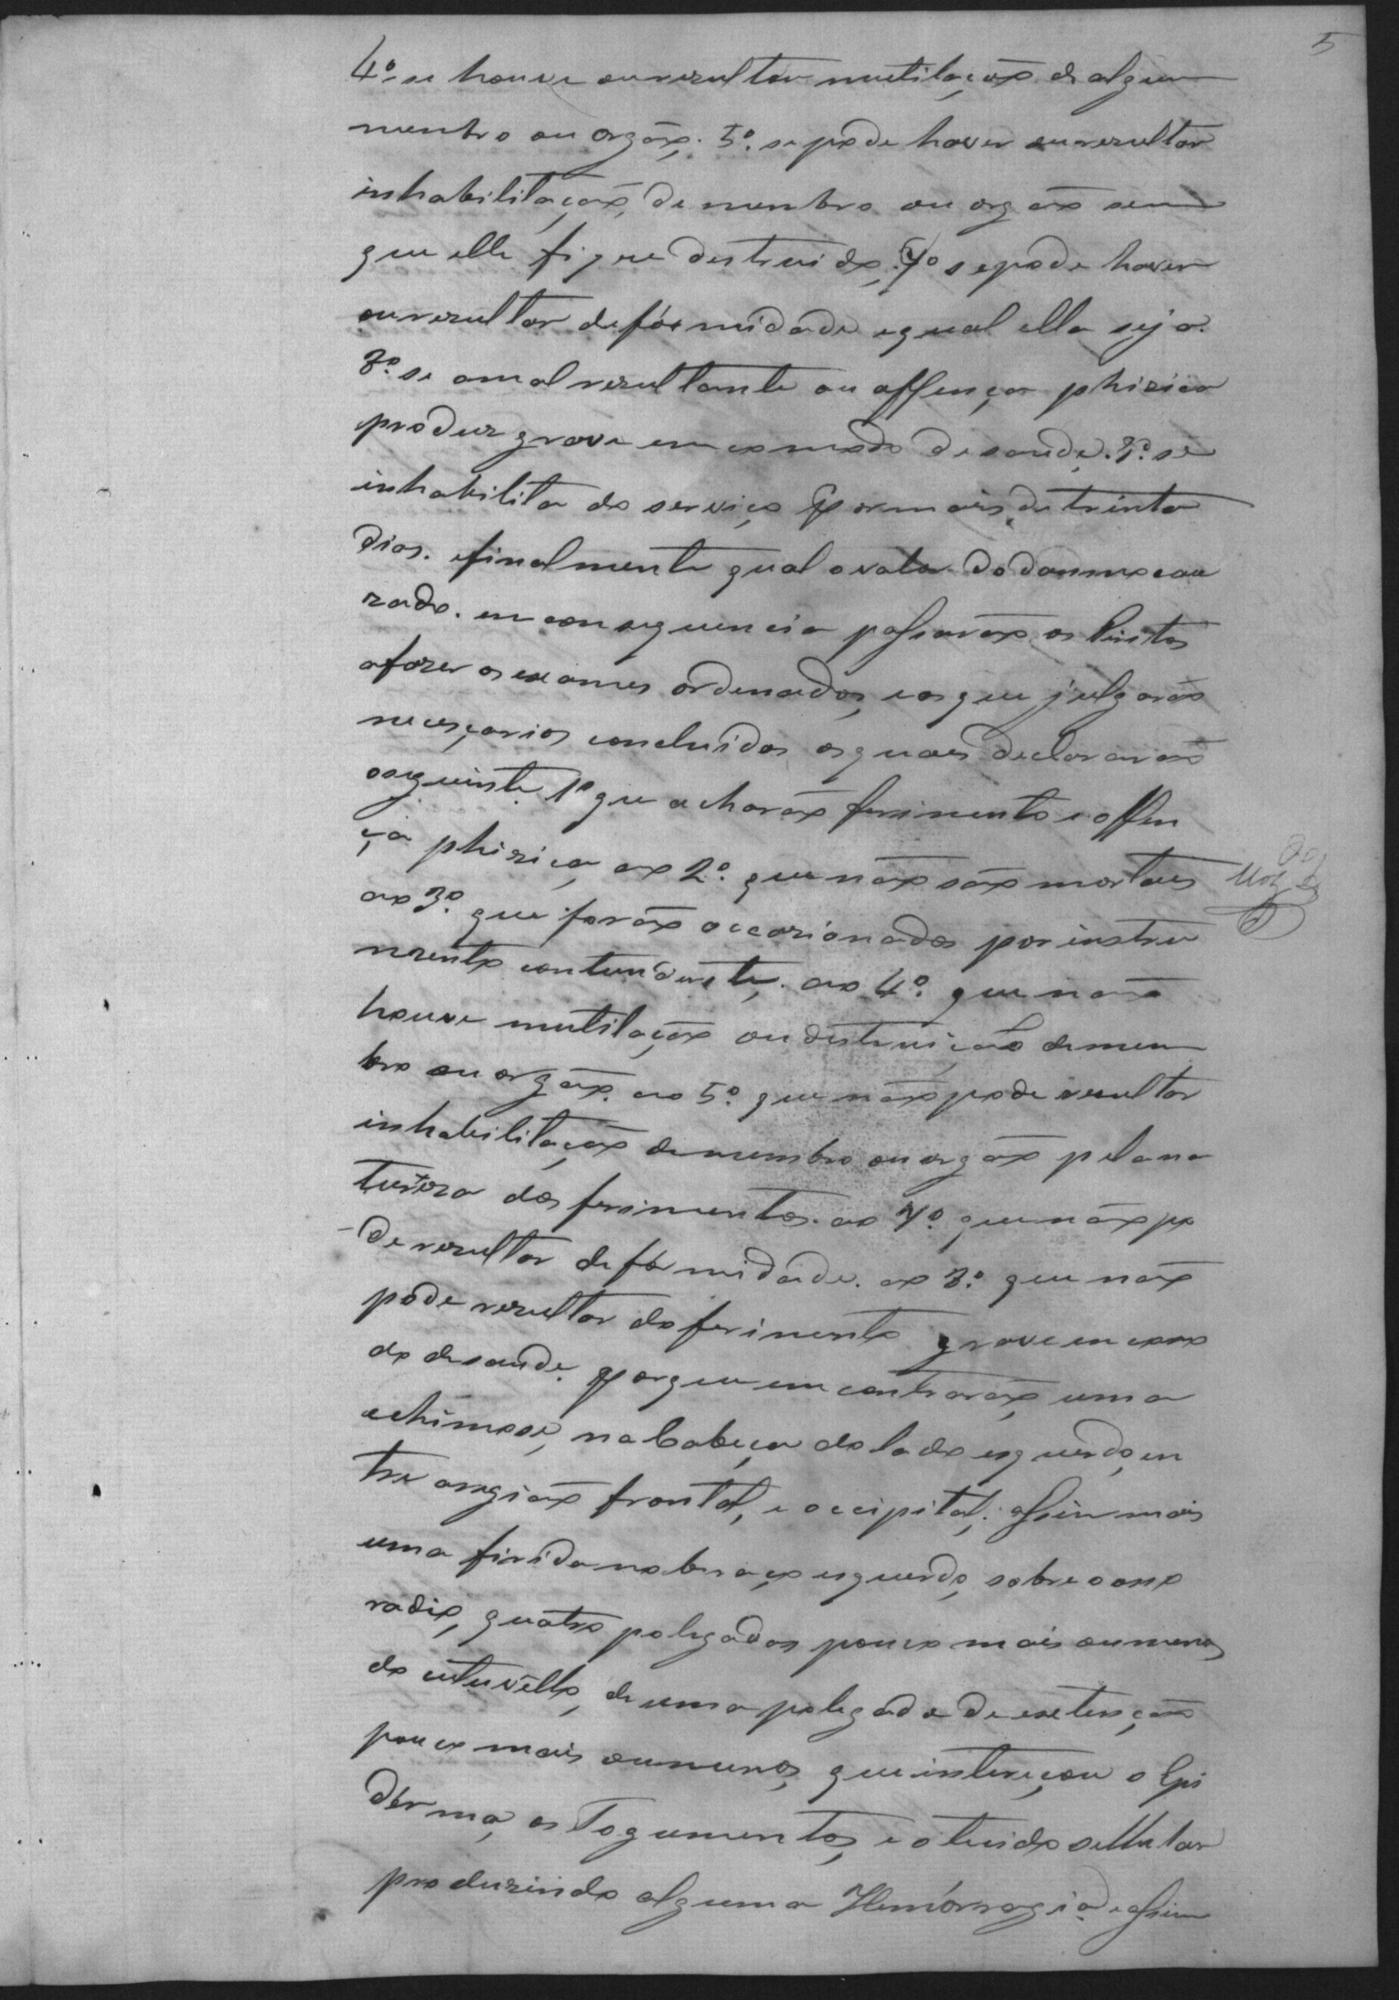 5
4º. se houve ou rezultou mutilaçaõ de algum
membro ou orgaõ. 5º. se pode haver ou rezultar
inhabilitaçaõ, de membro ou orgaõ sem
que elle fique destruido, 7º se pode haver
ou rezultar defórmidade e qual ella seja.
8º. se o mal rezultante ou offença phizica
produz grave encomodo de saude. 9º. se
inhabilita do serviço por mais de trinta
dias. e finalmente qual o valor do damno cau
zado. em consequencia passaraõ os Peritos
a fazer os exames ordenados, e os que julgaraõ
necesçarios concluidos os quaes declararaõ
o seguinte. 1º que acharaõ ferimento e offen
ça phizica, ao 2º. que naõ saõ mortaes
ao 3º. que foraõ occazionados por instru
mento contundente, ao 4º. que naõ
houve mutilaçaõ ou destruiçaõ de mem
bro ou orgaõ. ao 5º. que naõ pode rezultar
inhabilitaçaõ de membro ou orgaõ pela na
tureza dos ferimentos. ao 7º. que naõ po
de rezultar defórmidade. ao 8º. que naõ
pode rezultar do ferimento grave encomo
do de saude. porque encontraraõ, uma
echimose, na Cabeça do lado esquerdo, en
tre a regiaõ frontal, e occipital; assim mais
uma firida no braço esquerdo, sobre o osso
radio, quatro polegadas pouco mais ou menos
do cutuvello, de uma polegada de extençaõ
pouco mais ou menos, que intereçou o Epi
dérma, os Togumentos, e o teçido sellular
produzindo alguma Hemórragia. e assim